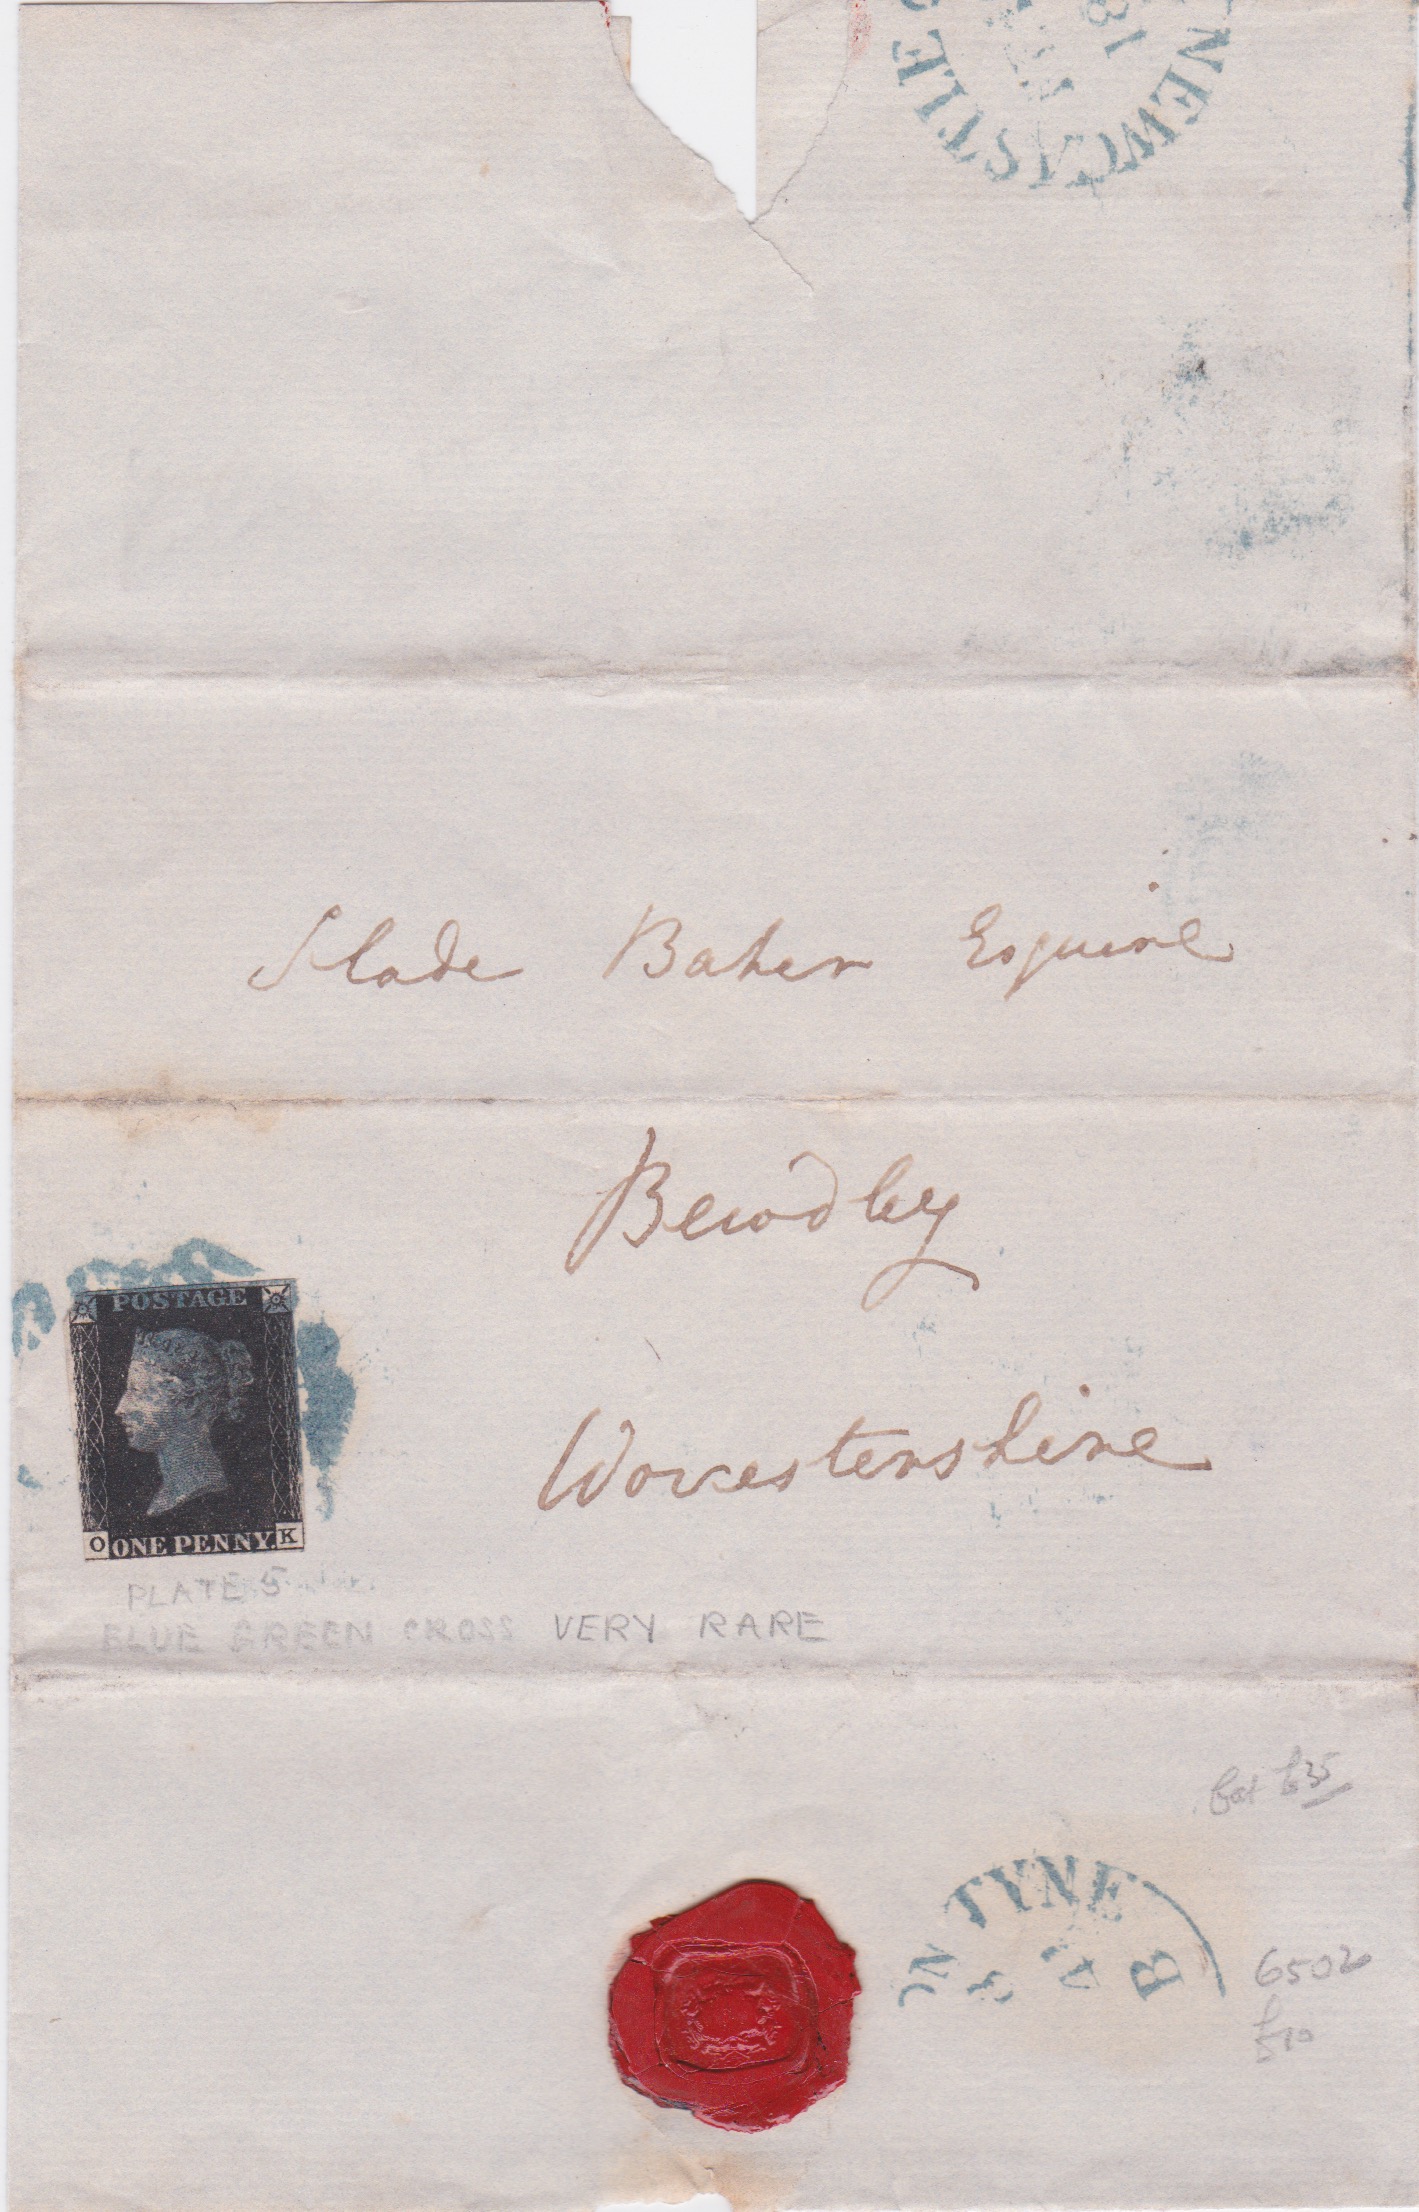 NEWCASTLE
18
Slade Baker Esquire
Bewdley
Worcestershire
POSTAGE
O ONE PENNY. K
PLATE 5
BLUE GREEN CROSS VERY RARE
ON TYNE
B
6502
£10